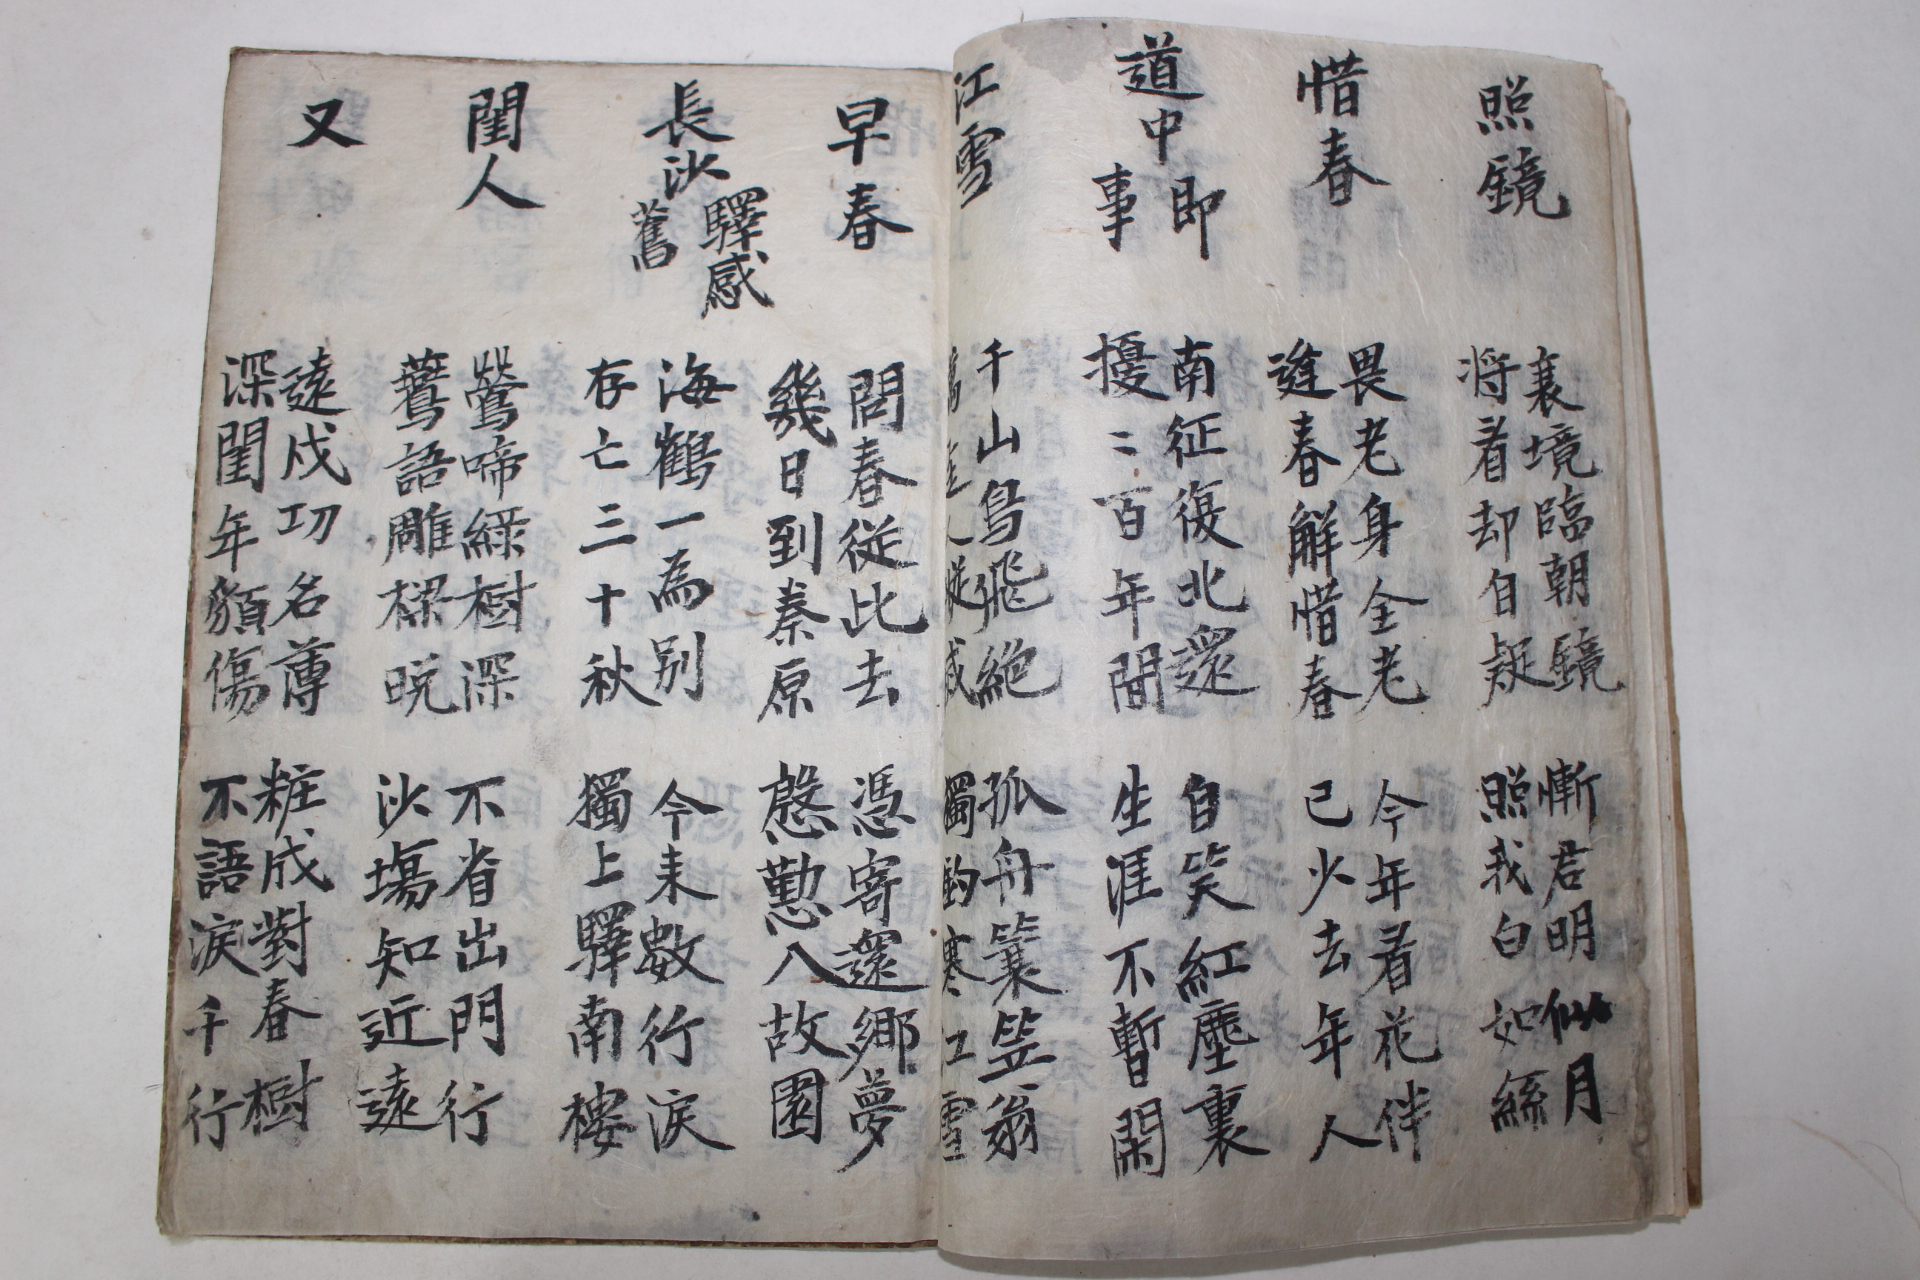 照鏡
襄境臨朝鏡
將看却自疑
慚君明似月
照我白如絲
惜春
畏老身全老
逢春解惜春
今年看花伴
已少去年人
道中即事
南征復北還
擾〻百年間
自笑紅塵裏
生涯不暫閑
江雪
千山鳥飛絶
萬逕人蹤滅
孤舟簑笠翁
獨釣寒江雪
早春
問春從此去
幾日到秦原
憑寄還鄉夢
慇懃入故園
長沙驛感舊
海鶴一為別
存亡三十秋
今来數行淚
獨上驛南樓
閨人
鶯啼綠樹深
鷰語雕樑晚
不省出門行
沙塲知近遠
又
遠戍功名薄
深閨年貌傷
粧成對春樹
不語淚千行